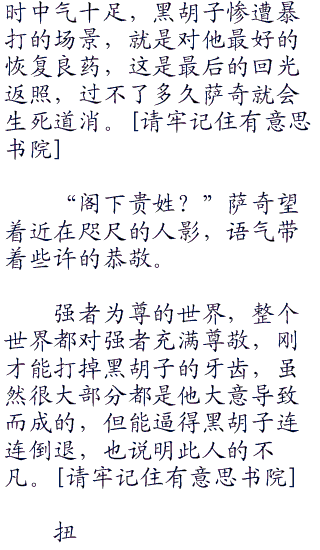 时中气十足，黑胡子惨遭暴
打的场景，就是对他最好的
恢复良药，这是最后的回光
返照，过不了多久萨奇就会
生死道消。[请牢记住有意思
书院]
“阁下贵姓？”萨奇望
着近在咫尺的人影，语气带
着些许的恭敬。
强者为尊的世界，整个
世界都对强者充满尊敬，刚
才能打掉黑胡子的牙齿，虽
然很大部分都是他大意导致
而成的，但能逼得黑胡子连
连倒退，也说明此人的不
凡。[请牢记住有意思书院]
扭